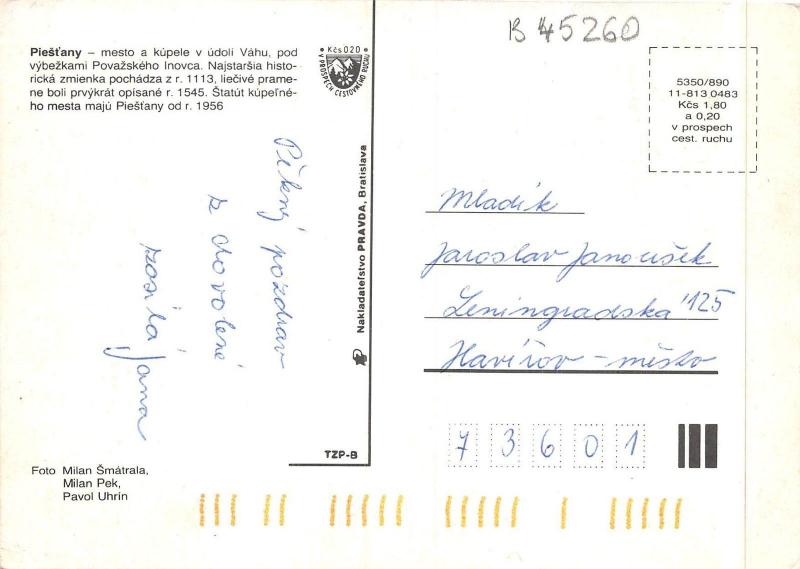 B 45260
Piešťany – mesto a kúpele v údolí Váhu, pod
výbežkami Považského Inovca. Najstaršia histo-
rická zmienka pochádza z r. 1113, liečivé prame-
ne boli prvýkrát opísané r. 1545. Štatút kúpeľné-
ho mesta majú Piešťany od r. 1956
Kčs 0 20
V PROSPECH CESTOVNÉHO RUCHU
5350/890
11-813 0483
Kčs 1,80
a 0,20
v prospech
cest. ruchu
Pěkný pozdrav
z dovolené
zasílá Jana
Nakladateľstvo PRAVDA, Bratislava
TZP-B
Mladík
Jaroslav Janoušek
Leningradska 125
Havířov – město
73601
Foto Milan Šmátrala,
Milan Pek,
Pavol Uhrin